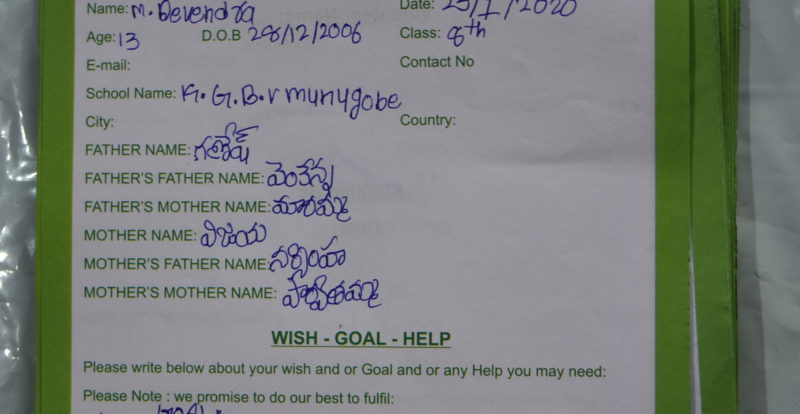 Name: M. Devendra Date: 25/1/2020
Age: 13 D.O.B 28/12/2006 Class: 8th
E-mail: Contact No
School Name: K. G. B. V munugobe
City: Country:
FATHER NAME: గణేష్
FATHER'S FATHER NAME: వెంకన్న
FATHER'S MOTHER NAME: మారమ్మ
MOTHER NAME: విజయ
MOTHER'S FATHER NAME: నర్సింహ
MOTHER'S MOTHER NAME: పార్వతమ్మ
WISH - GOAL - HELP
Please write below about your wish and or Goal and or any Help you may need:
Please Note : we promise to do our best to fulfil: